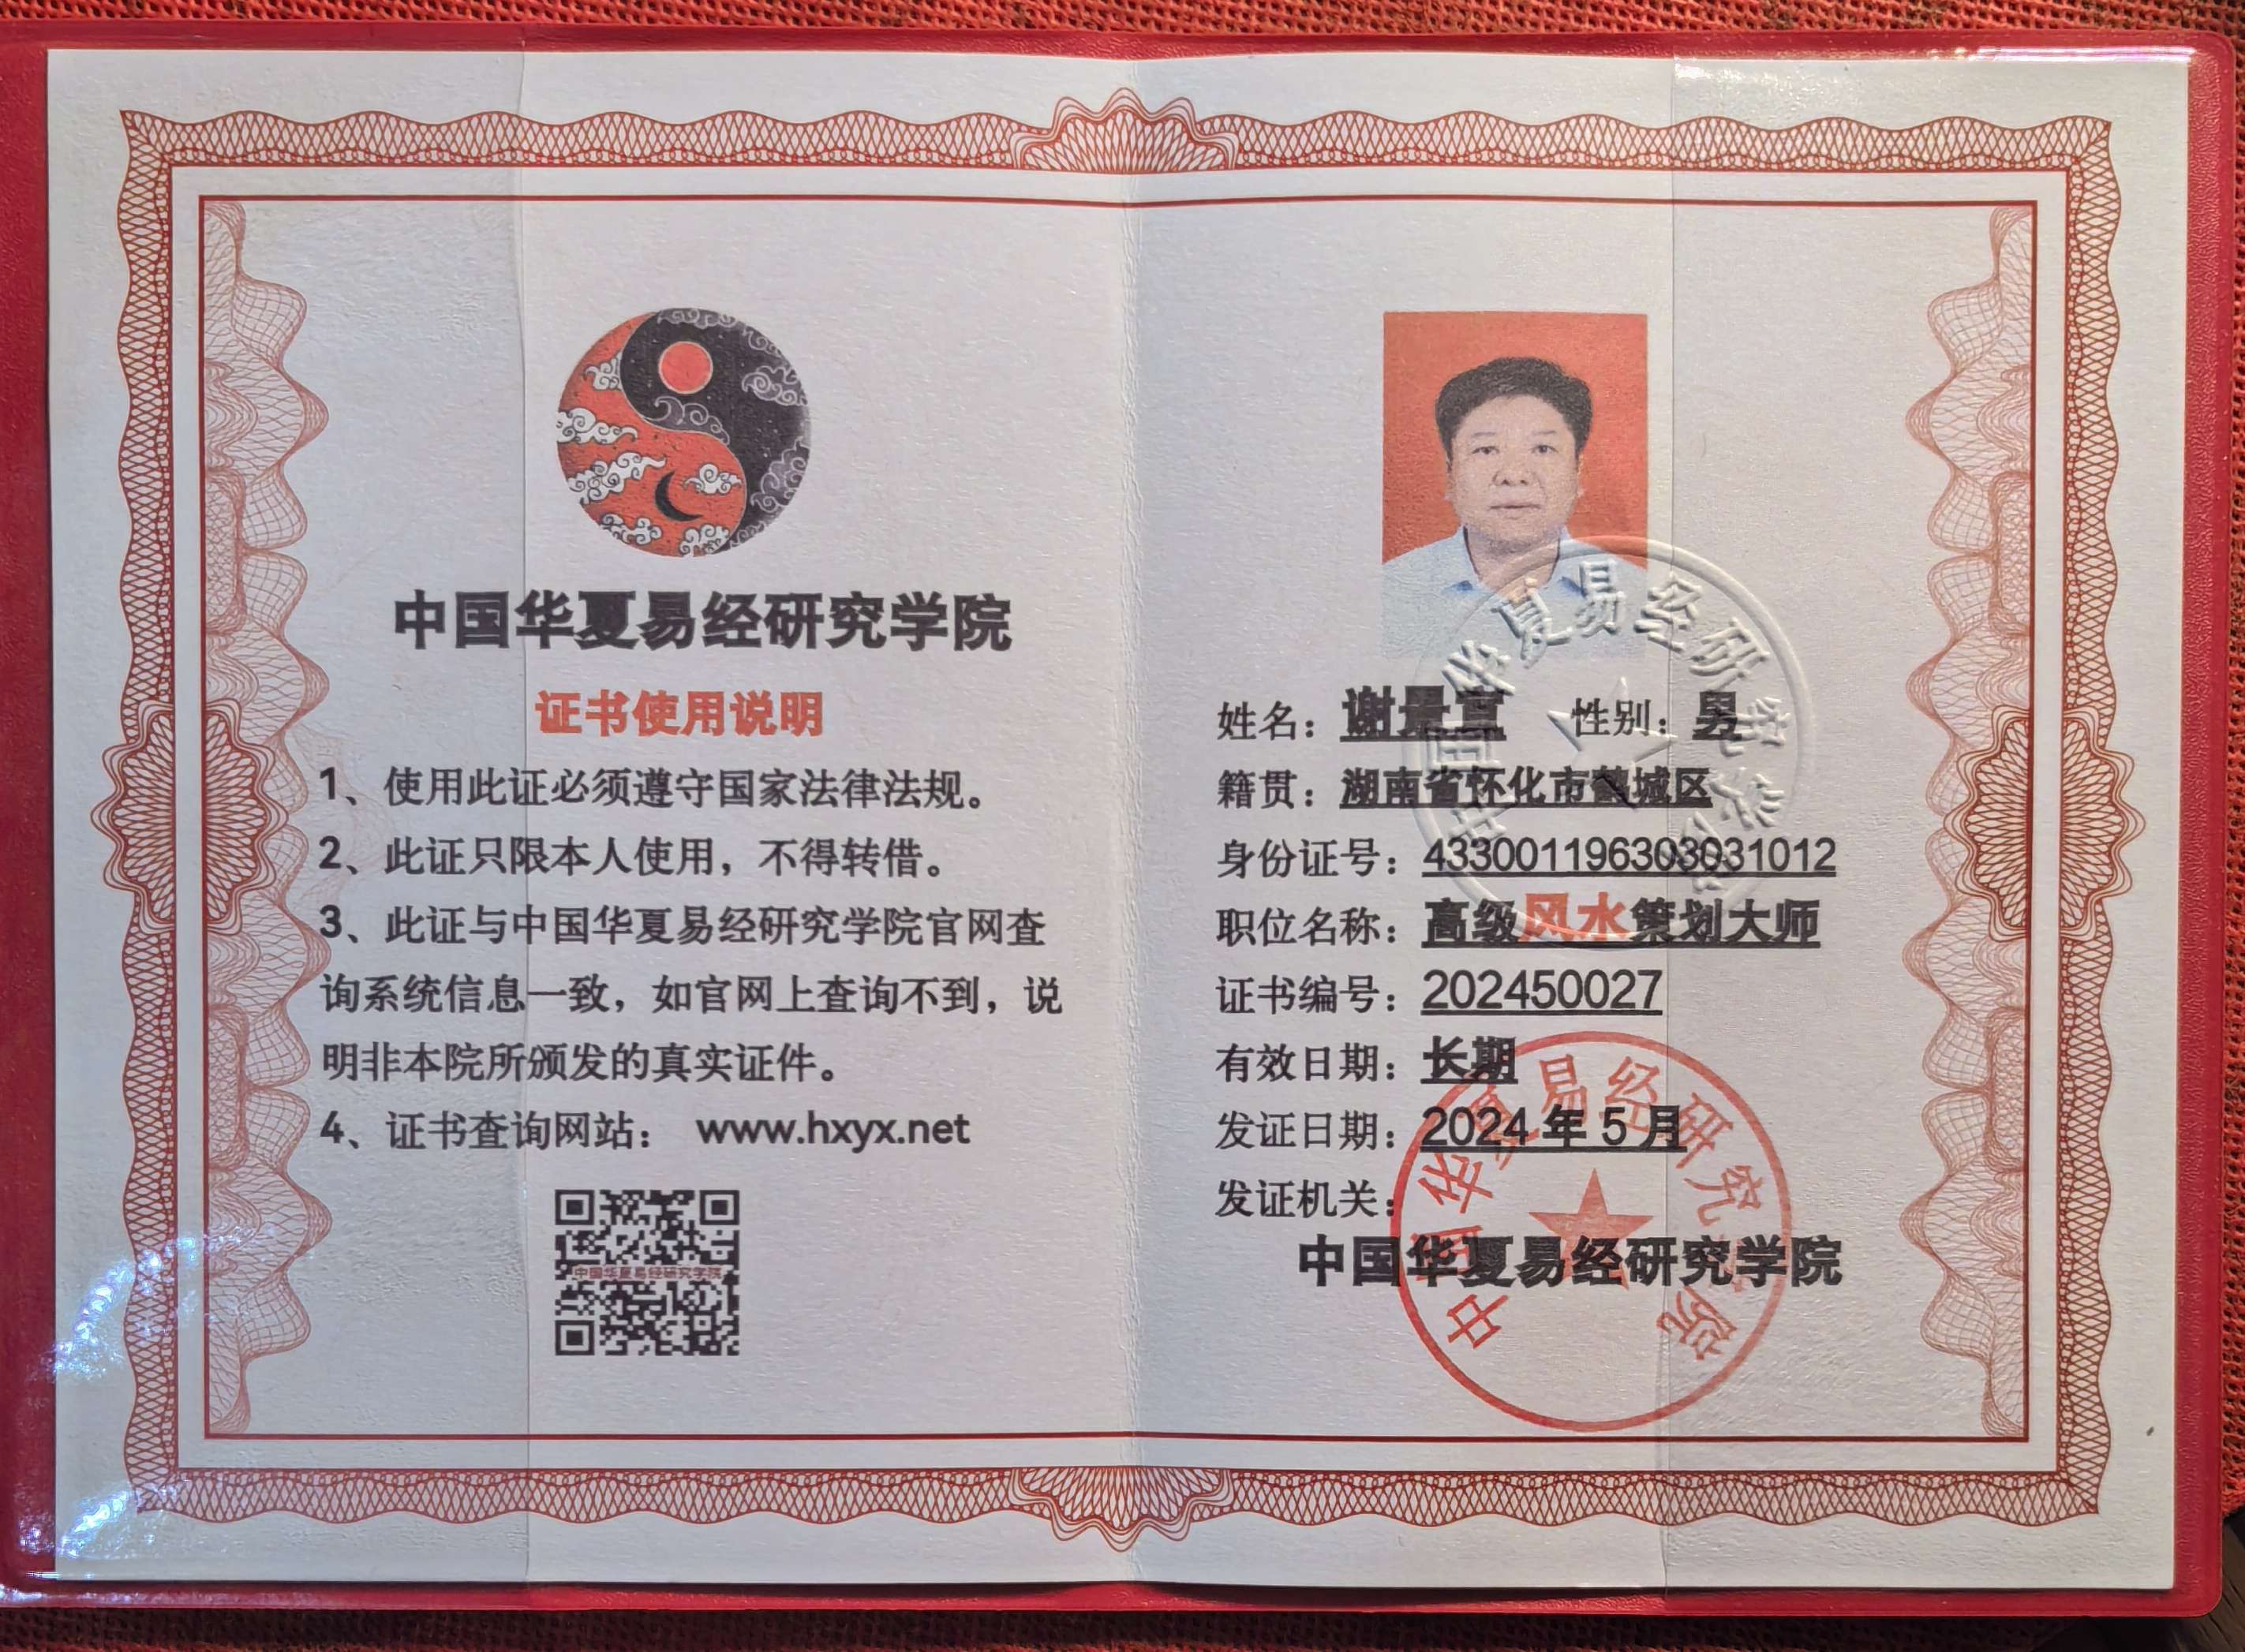 中国华夏易经研究学院
证书使用说明
1、使用此证必须遵守国家法律法规。
2、此证只限本人使用，不得转借。
3、此证与中国华夏易经研究学院官网查
询系统信息一致，如官网上查询不到，说
明非本院所颁发的真实证件。
4、证书查询网站： www.hxyx.net
中国华夏易经研究学院
中国华夏易经研究学院
姓名：谢景宣 性别：男
籍贯：湖南省怀化市鹤城区
身份证号：433001196303031012
职位名称：高级风水策划大师
证书编号：202450027
有效日期：长期
发证日期：2024年5月
发证机关：
中国华夏易经研究学院
中国华夏易经研究学院